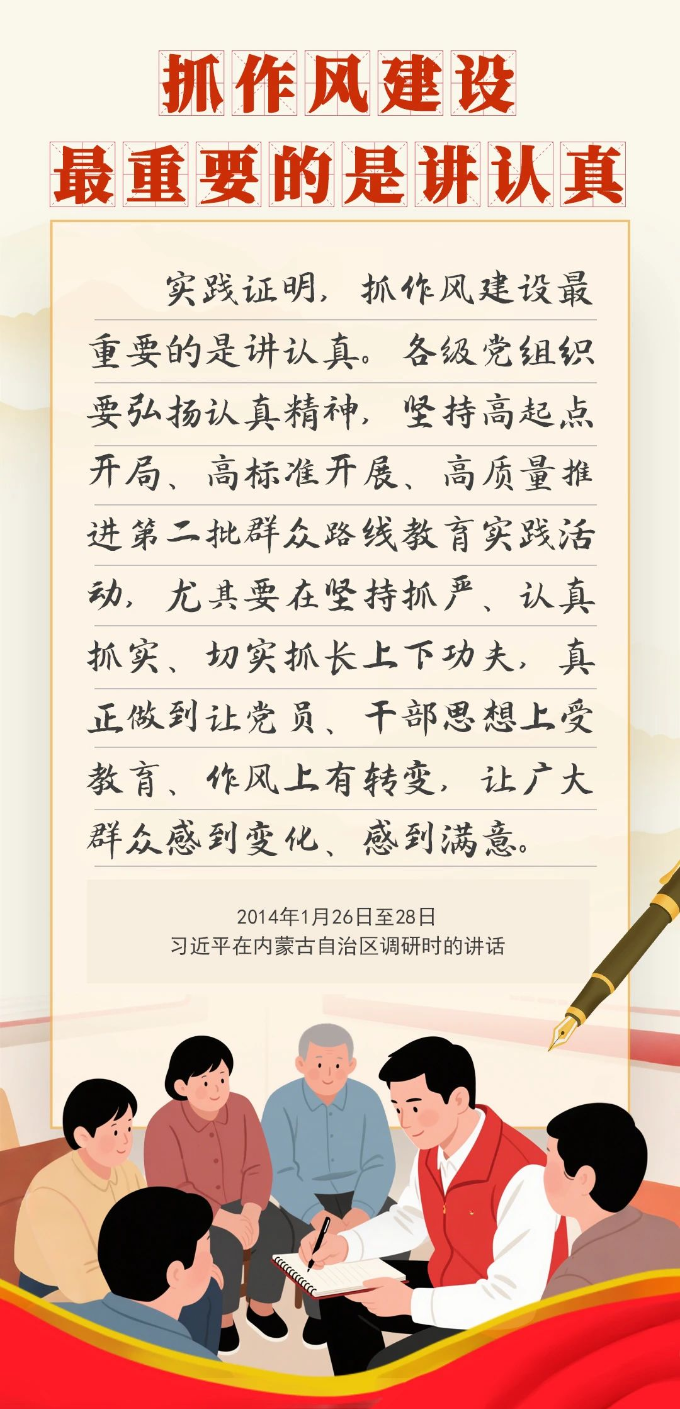 抓作风建设
最重要的是讲认真
实践证明，抓作风建设最
重要的是讲认真。各级党组织
要弘扬认真精神，坚持高起点
开局、高标准开展、高质量推
进第二批群众路线教育实践活
动，尤其要在坚持抓严、认真
抓实、切实抓长上下功夫，真
正做到让党员、干部思想上受
教育、作风上有转变，让广大
群众感到变化、感到满意。
2014年1月26日至28日
习近平在内蒙古自治区调研时的讲话